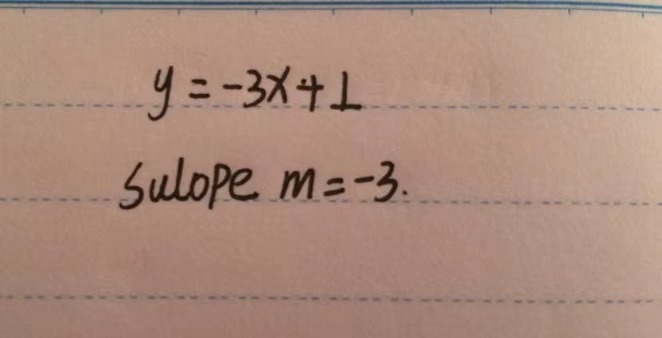 y = -3x + 1
Sulope m = -3.